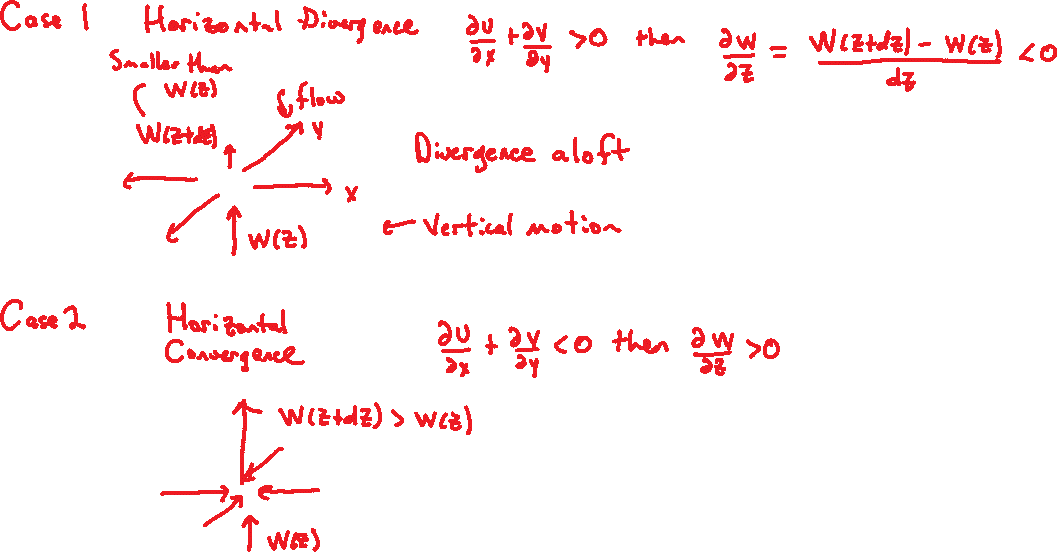 Case 1 Horizontal Divergence ∂U/∂x + ∂V/∂y > 0 then ∂W/∂z = (W(z+dz) - W(z))/dz < 0
Smaller than
W(z)
flow
W(z+dz)
y
Divergence aloft
x
Vertical motion
W(z)
Case 2 Horizontal
Convergence
∂U/∂x + ∂V/∂y < 0 then ∂W/∂z > 0
W(z+dz) > W(z)
W(z)